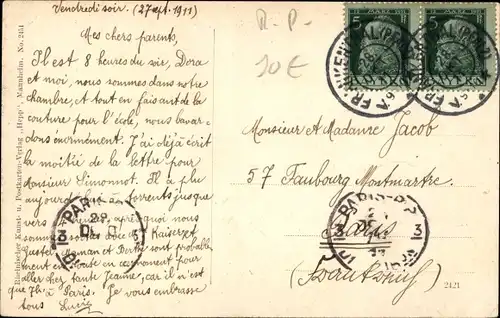 Vendredi soir. (27 sept. 1911)
Mes chers parents,
Il est 8 heures du soir, Dora
et moi, nous sommes dans notre
chambre, et tout en faisant de la
couture pour l'école, nous bavar-
dons énormément. J'ai déjà écrit
la moitié de la lettre pour
Monsieur Simonnot. Il a plu
aujourd'hui à torrents jusque
vers après quoi nous
sommes Kaiserzet
juste man et Berthe sont probable-
ment en route en ce moment pour
aller chez tante Jeanne, car il n'est
que 7h. à Paris. Je vous embrasse
tous Lucie
R. P.
10 €
Monsieur et Madame Jacob
57 Faubourg Montmartre.
Paris
(Frankreich)
Rheinische Kunst- u. Postkarten-Verlag „Hepp", Mannheim. No. 2451
2421
FRANKENTHAL (PFALZ)
BAYERN
5 5
PARIS
3 3
PARIS
3 3